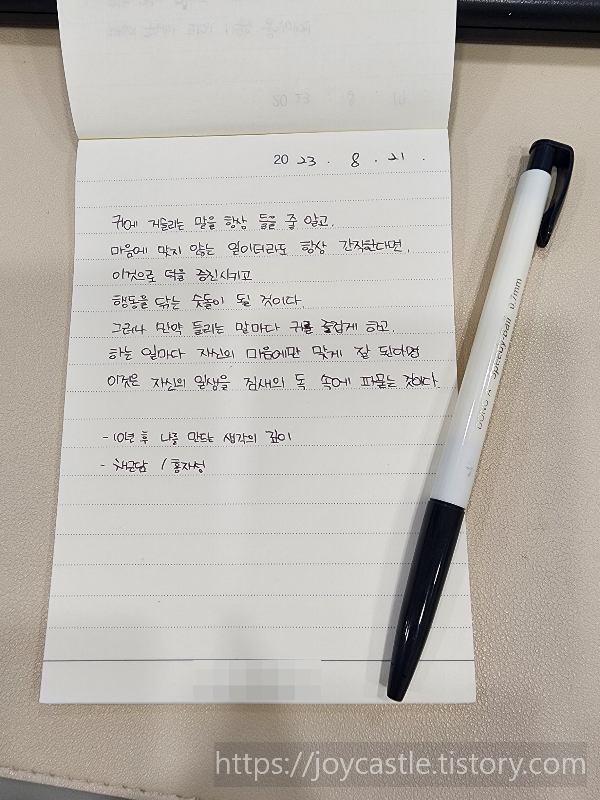 2023. 8. 21.
귀에 거슬리는 말을 항상 들을 줄 알고,
마음에 맞지 않는 일이더라도 항상 간직한다면,
이것으로 덕을 증진시키고
행동을 닦는 숫돌이 될 것이다.
그러나 만약 들리는 말마다 귀를 즐겁게 하고,
하는 일마다 자신의 마음에만 맞게 잘 된다면
이것은 자신의 일생을 짐새의 독 속에 파묻는 것이다.
- 10년 후 나를 만드는 생각의 깊이
- 채근담 / 홍자성
0.7mm
https://joycastle.tistory.com